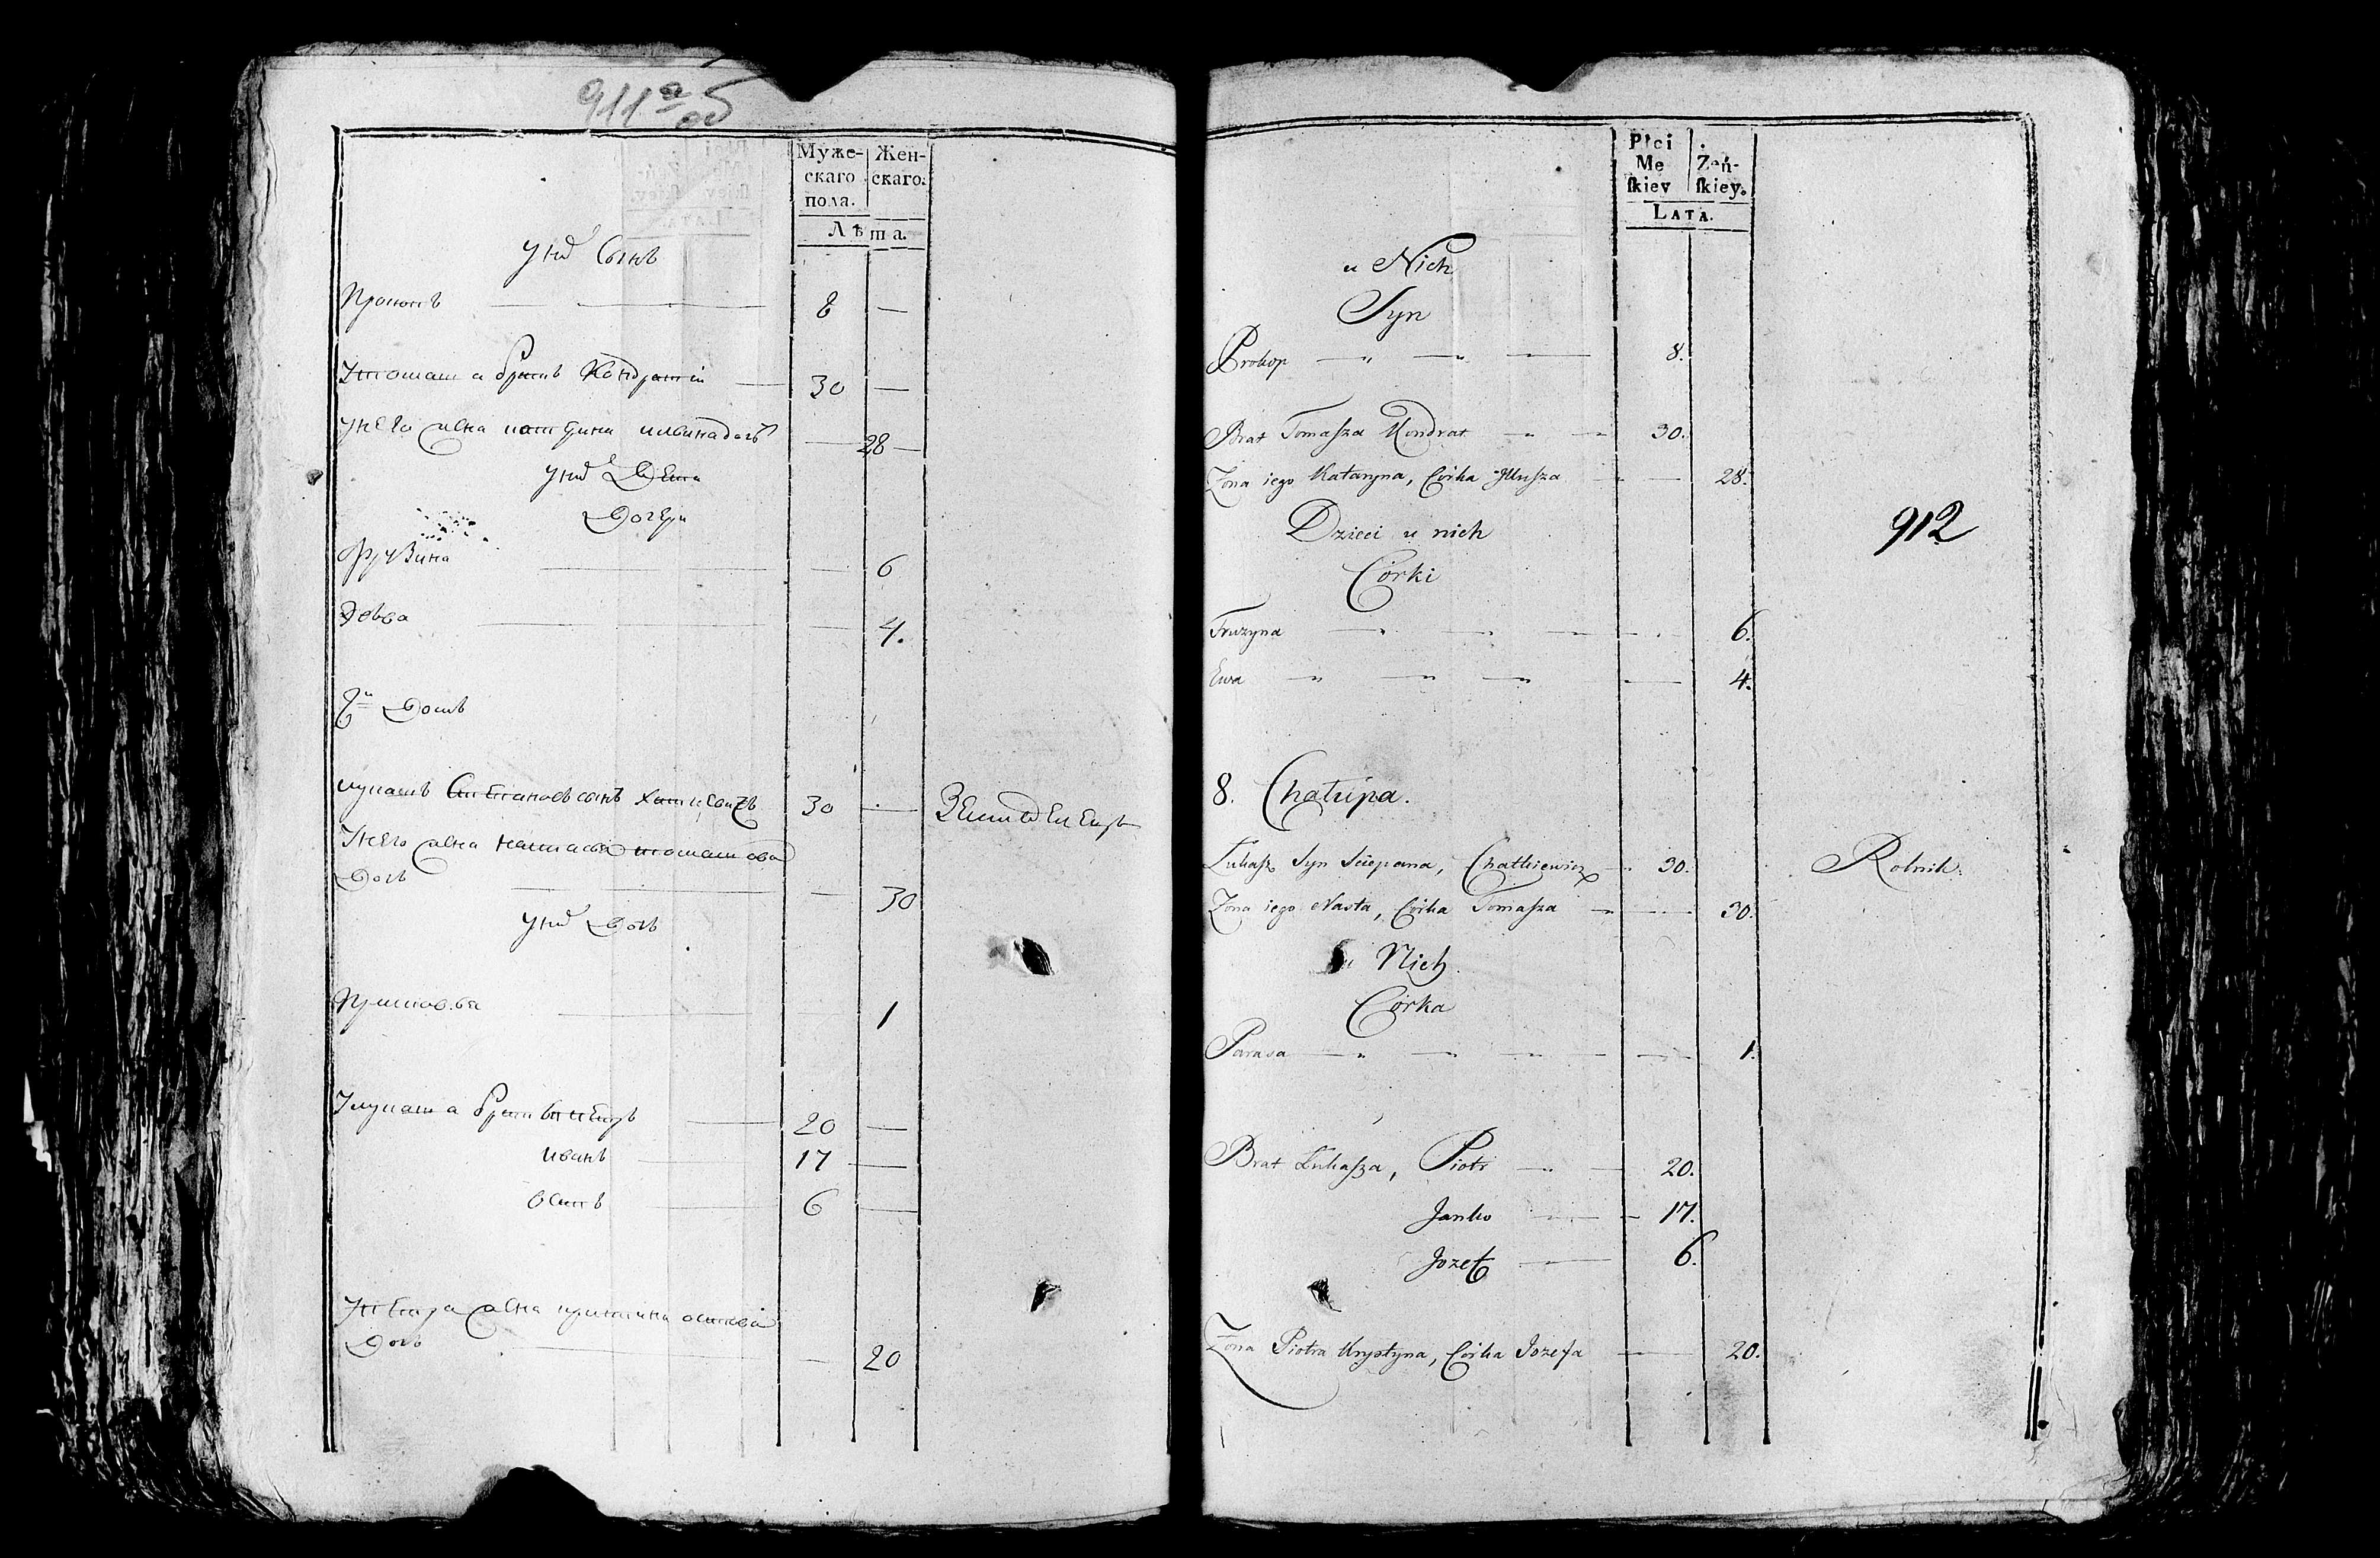 911 а об
Муже-
скаго
пола.
Жен-
скаго.
Лѣта.
У нихъ Сынъ
Прокопъ 8 —
У томаша братъ Кондратiй — 30 —
У него жена катерина — 28 —
У нихъ Дети
Дочери
Фрузина — 6
Эовва — 4.
8й Домъ
лукашъ Степановъ сынъ хаткевичъ 30 — Земледелецъ
У него жена настасья томашова
Дочь — 30
У нихъ Дочь
1
У лукаша братья петръ — 20 —
иванъ — 17 —
осипъ — 6 —
У петра жена кристина
Дочь — 20
Płci
Mę
ſkiey
Żeń-
ſkiey.
LATA.
u Nich
Syn
Prokop — „ — „ — 8.
912
Brat Tomaſza Kondrat — „ — 30.
Zona iego Kataryna, Córka — 28.
Dzieci u nich
Córki
Fruzyna — „ — „ — 6.
Ewa — „ — „ — „ — 4.
8. Chałupa.
Łukaſz Syn Sciepana, Chatkiewicz — 30. Rolnik.
Zona iego Nasta, Córka Tomaſza — „ — 30.
u Nich.
Córka
Parasa — „ — „ — „ — 1.
Brat Łukaſza, Piotr — „ — 20.
Janko — „ — 17.
Jozef — 6.
Zona Piotra Krystyna, Córka Jozefa — 20.